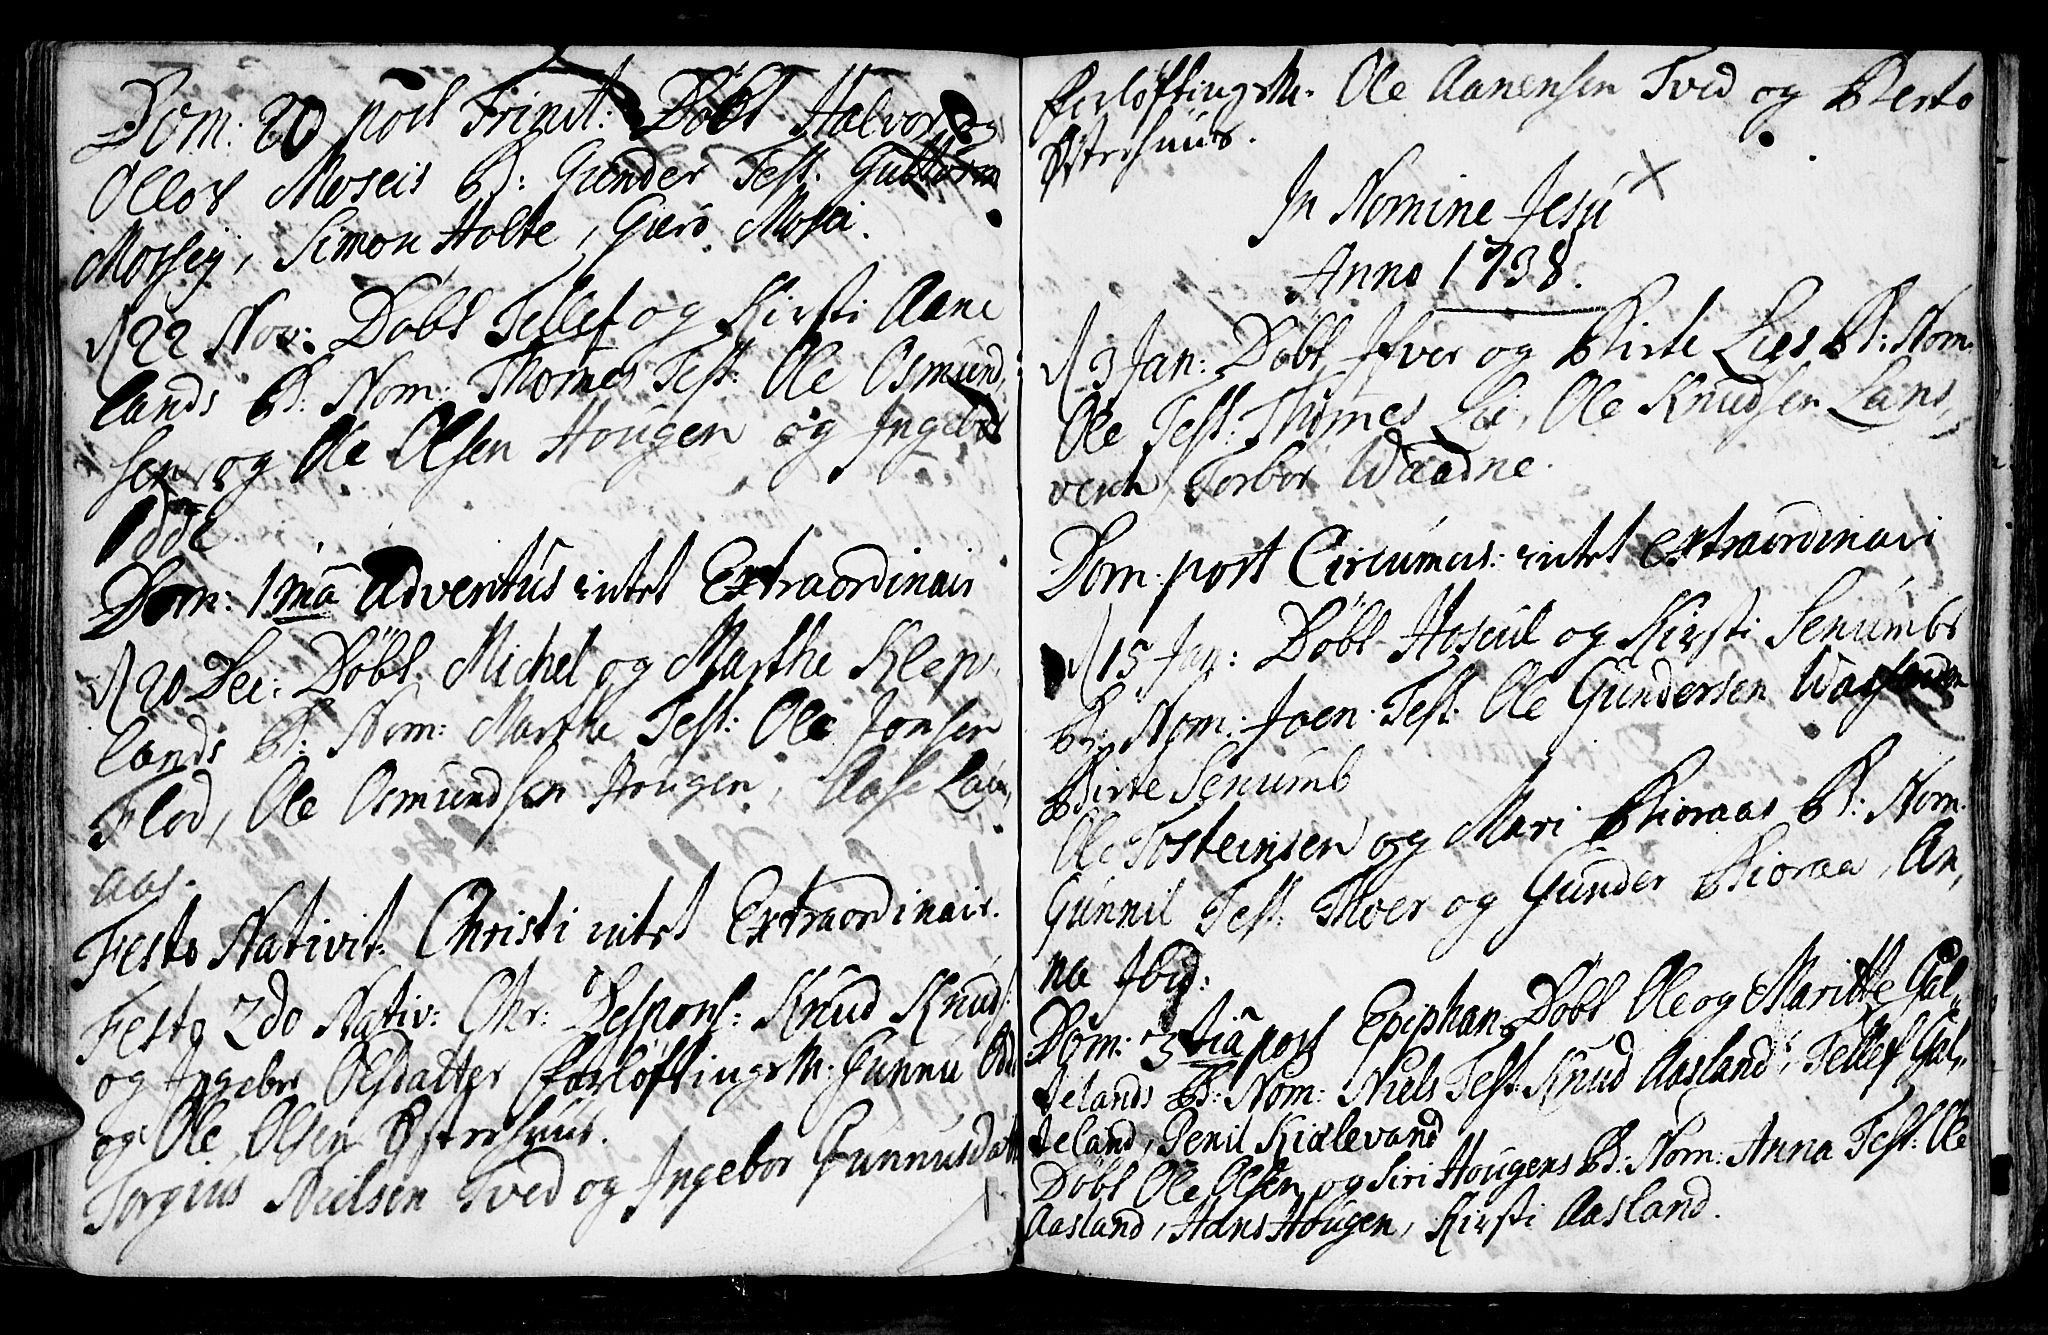 Dom: 20 post Trinit: Döbt Halvor og
Ollos Moseis B: Gunder Test. Guttorm
Mossej, Simon Holte, Gierö Mosei.
d 22 Nov: Döbt Tellef og Kirsti Aane
lands B: Nom: Thomes Test: Ole Osmund,
sen og Ole Olsen Hougen og Ingebor
Odde
Dom: 1ma Adventus intet Extraordinair
d 20 Dec: Döbt Michel og Marthe Klep,
lands B: Nom: Marthe Test: Ole Jonsen
Flod, Ole Osmundsen Hougen, Aase Lau,
aas.
Festo Nativit: Christi intet Extraordinair.
Festo 2do Nativ: Chr: Despons: Knud Knuds:
og Ingebor Olsdatter Forlöftingsm: Gunnu
og Ole Olsen Østerhuus.
Torgius Nielsen Tved og Ingebor Gunnusdatt
Forlöftingsm. Ole Aanensen Tved og Berto
Østerhuus.
In Nomine Jesu
Anno 1738.
d 3 Jan: Döbt Ifver og Birte Lies B: Nom:
Ole Test: Thomes Lie, Ole Knudsen Lans,
verk, Torbor Waadne.
Dom. post Circumcis: intet extraordinari
d 15 Jan: Döbt Hoscul og Kirsti Senumbs
B: Nom: Joen. Test. Ole Gundersen
Birte Senumb
Ole Tosteinsen og Mari Bioraas B: Nom.
Gunnil Test: Thoer og Gunder Bioraa, An,
na Ibid:
Dom: 3tia post Epiphan, Döbt Ole og Maritte Gal,
delands B: Nom: Niels Test: Knud Aasland, Tellef Gal,
deland, Penil Kixlevand
Döbt Ole Olsen og Siri Hougens B: Nom: Anna Test: Ole
Aasland, Hans Hougen, Kirsti Aasland.